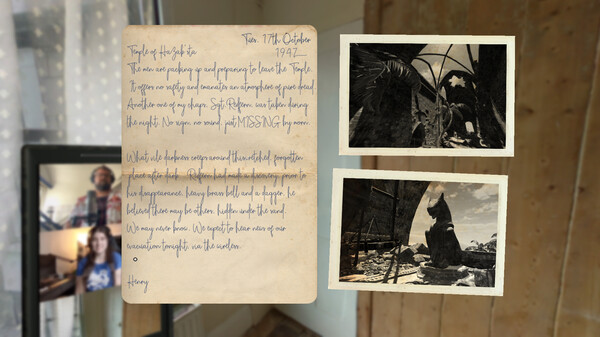 Tues. 17th October
1942
Temple of
The men are packing up and preparing to leave the Temple.
It offers no safety and emanates an atmosphere of pure dread.
Another one of my chaps, Sgt. Redfern, was taken during
the night. No sign, no sound, just MISSING by morn.
What vile darkness creeps around this wretched, forgotten
place after dark... Redfern had made a discovery prior to
his disappearance, heavy brass bell and a dagger, he
believed there may be others, hidden under the sand.
We may never know. We expect to hear news of our
evacuation tonight, via the wireless.
Henry